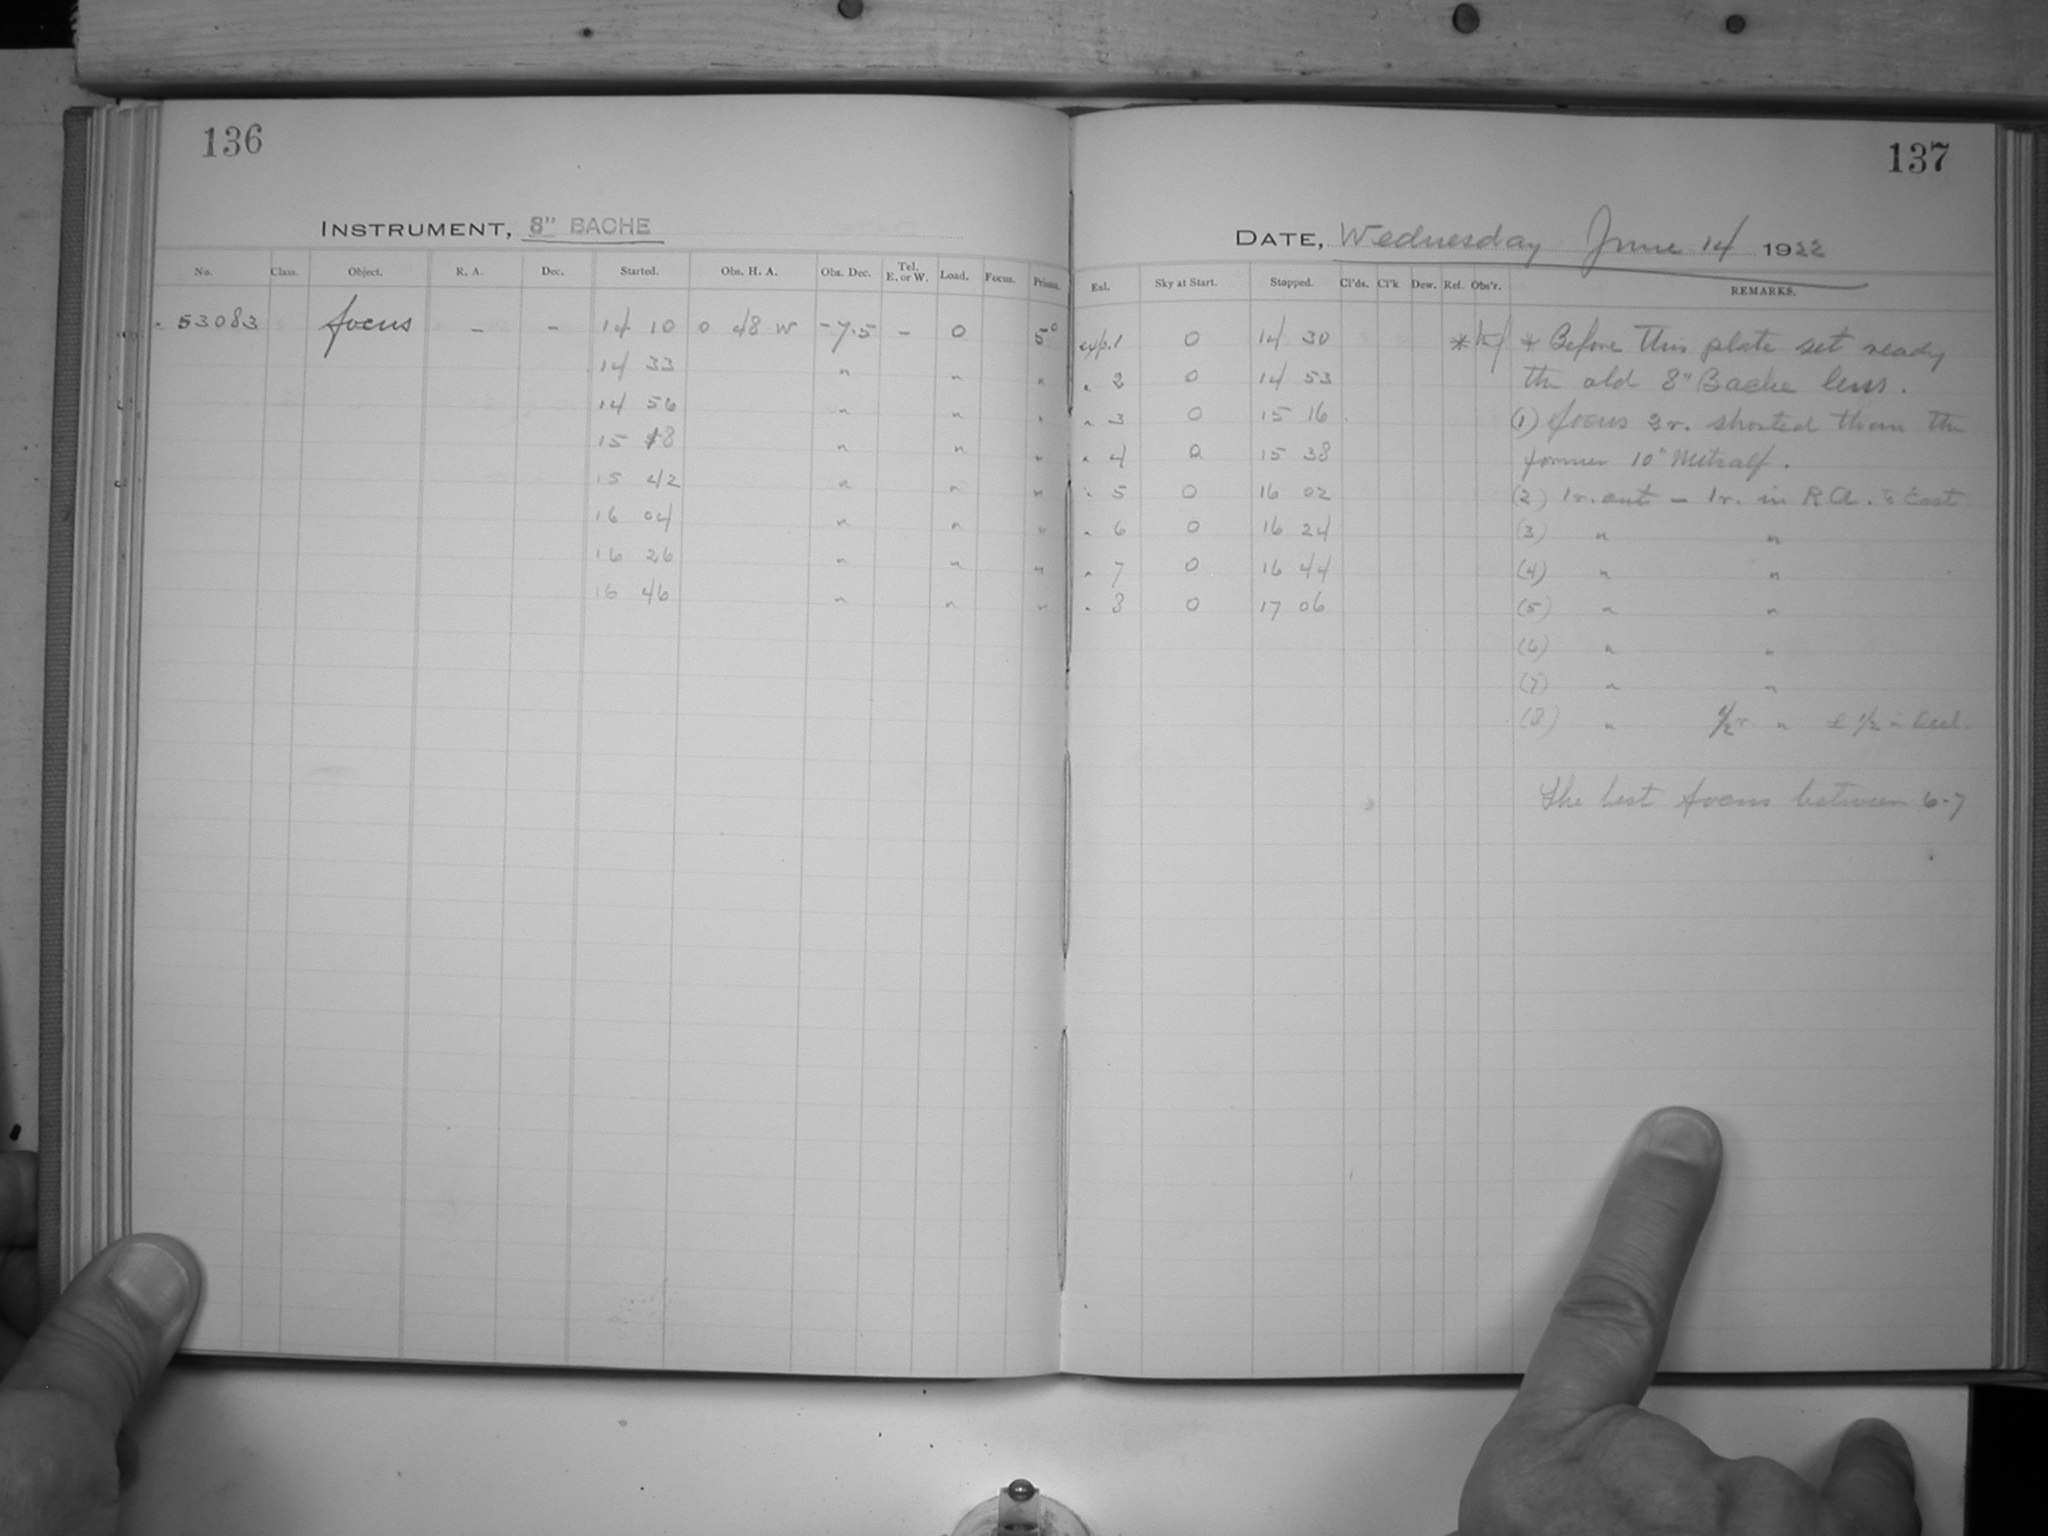 136
INSTRUMENT, 8" BACHE
No. Class. Object. R. A. Dec. Started. Obs. H. A. Obs. Dec. Tel. E. or W. Load. Focus. Prisms.
53083 focus - - 14 10 0 48 W -7.5 - 0 5°
14 33 " " "
14 56 " " "
15 18 " " "
15 42 " " "
16 04 " " "
16 26 " " "
16 46 " " "
137
DATE, Wednesday June 14 1922
Exl. Sky at Start. Stopped. Cl'ds. Cl'k Dew. Ref. Obs'r. REMARKS.
exp. 1 0 14 30 * * Before this plate set ready
" 2 0 14 53 the old 8" Bache lens.
" 3 0 15 16 (1) focus 2r. shorted than the
" 4 0 15 38 former 10" Metcalf.
" 5 0 16 02 (2) 1r. out - 1r. in R.A. to East
" 6 0 16 24 (3) " "
" 7 0 16 44 (4) " "
" 8 0 17 06 (5) " "
(6) " "
(7) " "
(8) " 1/2r " & 1/2 " Decl.
The best focus between 6-7